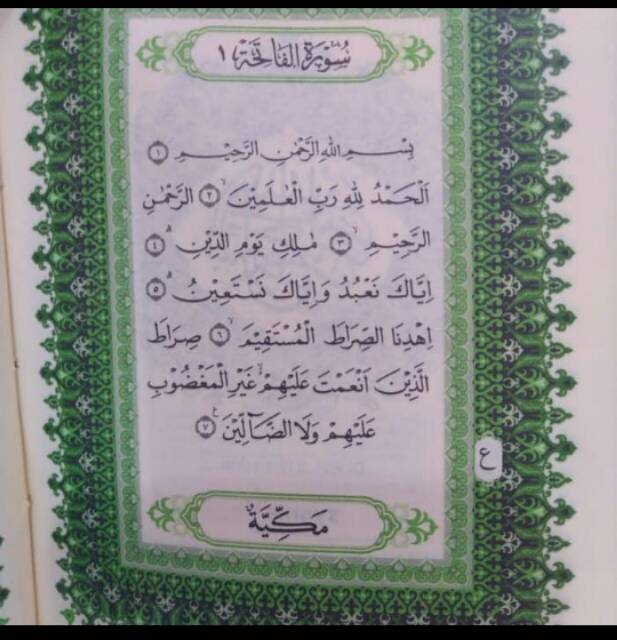 سُوْرَةُ الفَاتِحَةِ ١
بِسْمِ اللهِ الرَّحْمٰنِ الرَّحِيْمِ ١
اَلْحَمْدُ لِلّٰهِ رَبِّ الْعٰلَمِيْنَۙ ٢ الرَّحْمٰنِ
الرَّحِيْمِۙ ٣ مٰلِكِ يَوْمِ الدِّيْنِۗ ٤
اِيَّاكَ نَعْبُدُ وَاِيَّاكَ نَسْتَعِيْنُۗ ٥
اِهْدِنَا الصِّرَاطَ الْمُسْتَقِيْمَۙ ٦ صِرَاطَ
الَّذِيْنَ اَنْعَمْتَ عَلَيْهِمْۙ غَيْرِ الْمَغْضُوْبِ
عَلَيْهِمْ وَلَا الضَّاۤلِّيْنَ ٧
ع
مَكِّيَّةٌ